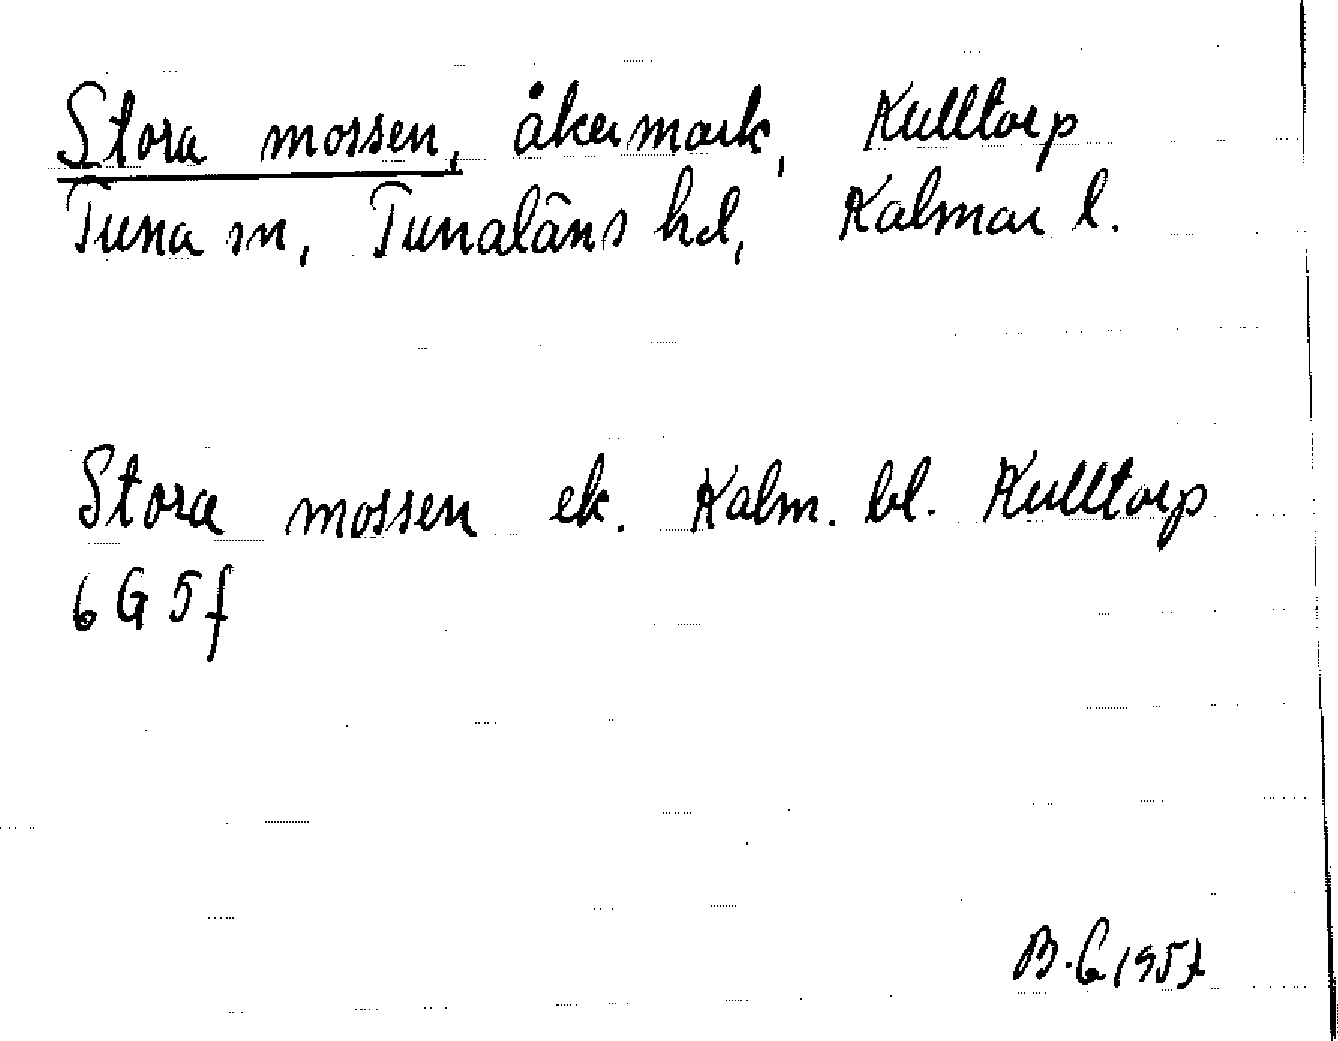 Stora mossen, åkermark, Kulltorp
Tuna sn, Tunaläns hd, Kalmar l.
Stora mossen ek. Kalm. bl. Kulltorp
6 G 5 f
B. G 1957